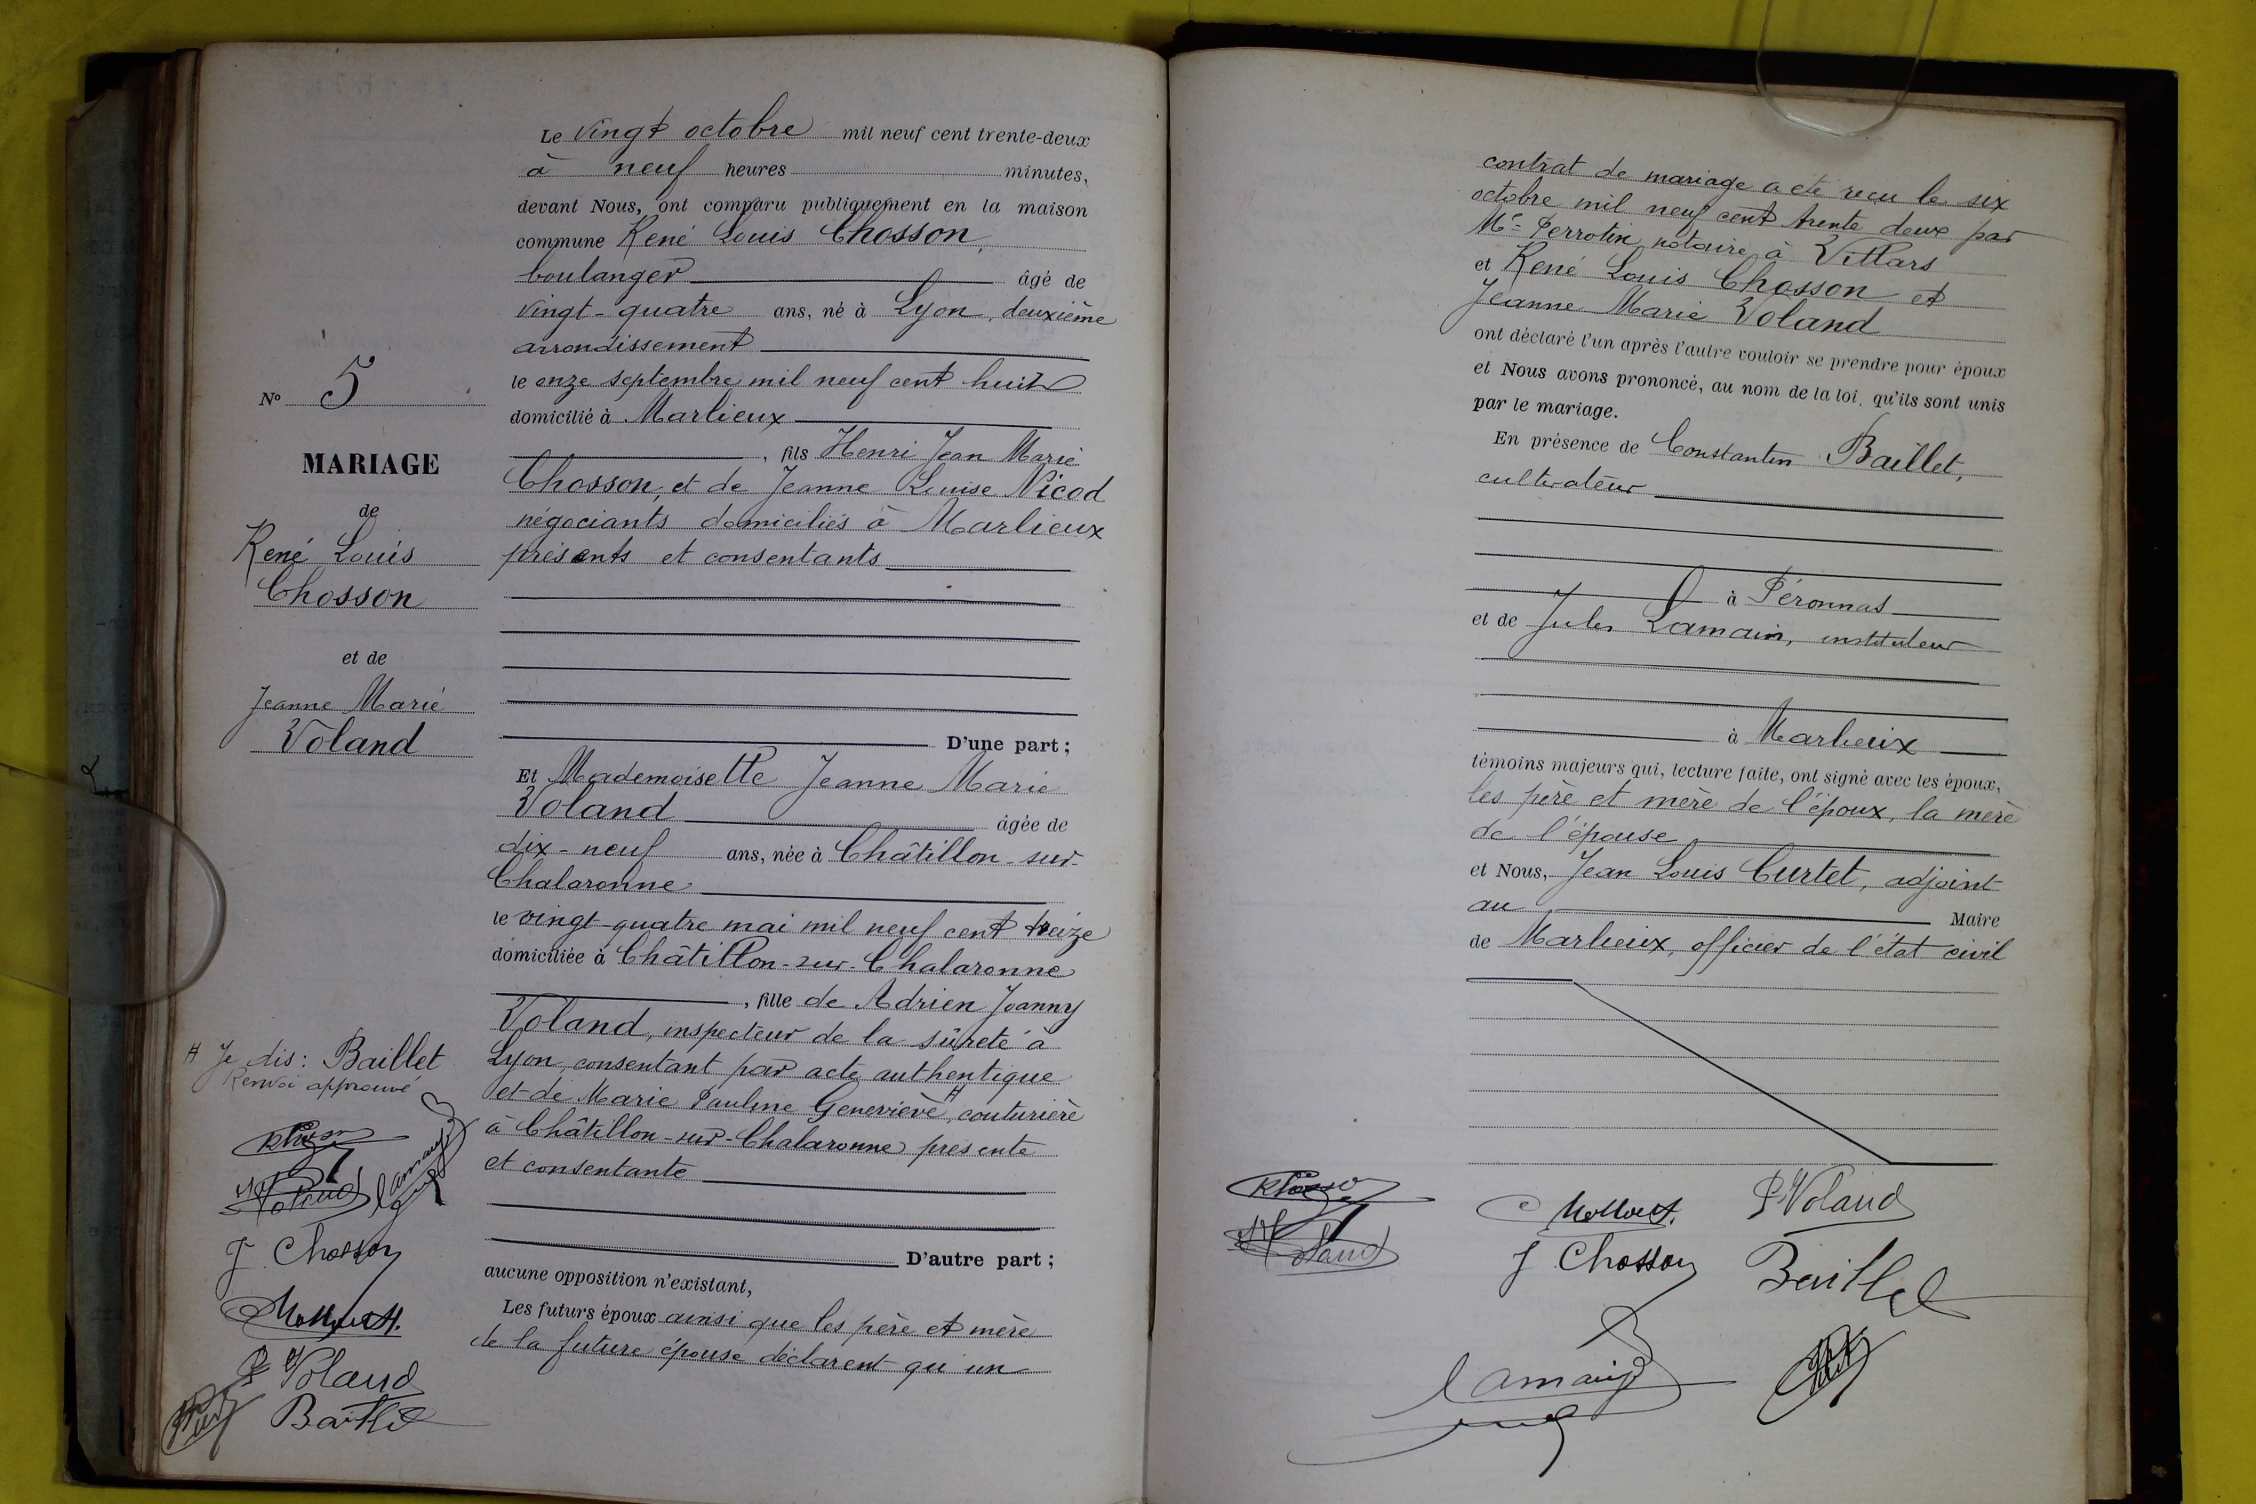 Le vingt octobre mil neuf cent trente-deux
à neuf heures minutes,
devant Nous, ont comparu publiquement en la maison
commune René Louis Chosson,
boulanger âgé de
vingt-quatre ans, né à Lyon, deuxième
arrondissement
le onze septembre mil neuf cent huit
domicilié à Marlieux
, fils Henri Jean Marie
Chosson, et de Jeanne Louise Nicod
négociants domiciliés à Marlieux
présents et consentants
D'une part ;
Et Mademoiselle Jeanne Marie
Voland âgée de
dix-neuf ans, née à Châtillon-sur-
Chalaronne
le vingt-quatre mai mil neuf cent treize
domiciliée à Châtillon-sur-Chalaronne
, fille de Adrien Joanny
Voland, inspecteur de la sûreté à
Lyon, consentant par acte authentique
et de Marie Pauline Geneviève #, couturière
à Châtillon-sur-Chalaronne présente
et consentante
D'autre part ;
aucune opposition n'existant,
Les futurs époux ainsi que les père et mère
de la future épouse déclarent qu'un
N° 5
MARIAGE
de
René Louis
Chosson
et de
Jeanne Marie
Voland
# Je dis : Baillet
Renvoi approuvé
J Chosson
P Voland
Baillet
contrat de mariage a été reçu le six
octobre mil neuf cent trente deux par
Me Perrotin, notaire à Villars
et René Louis Chosson et
Jeanne Marie Voland
ont déclaré l'un après l'autre vouloir se prendre pour époux
et Nous avons prononcé, au nom de la loi, qu'ils sont unis
par le mariage.
En présence de Constantin Baillet,
cultivateur
à Péronnas
et de Jules Lamain, instituteur
à Marlieux
témoins majeurs qui, lecture faite, ont signé avec les époux,
les père et mère de l'époux, la mère
de l'épouse
et Nous, Jean Louis Curtet, adjoint
au Maire
de Marlieux, officier de l'état civil
P Voland
J Chosson
Baillet
Lamain